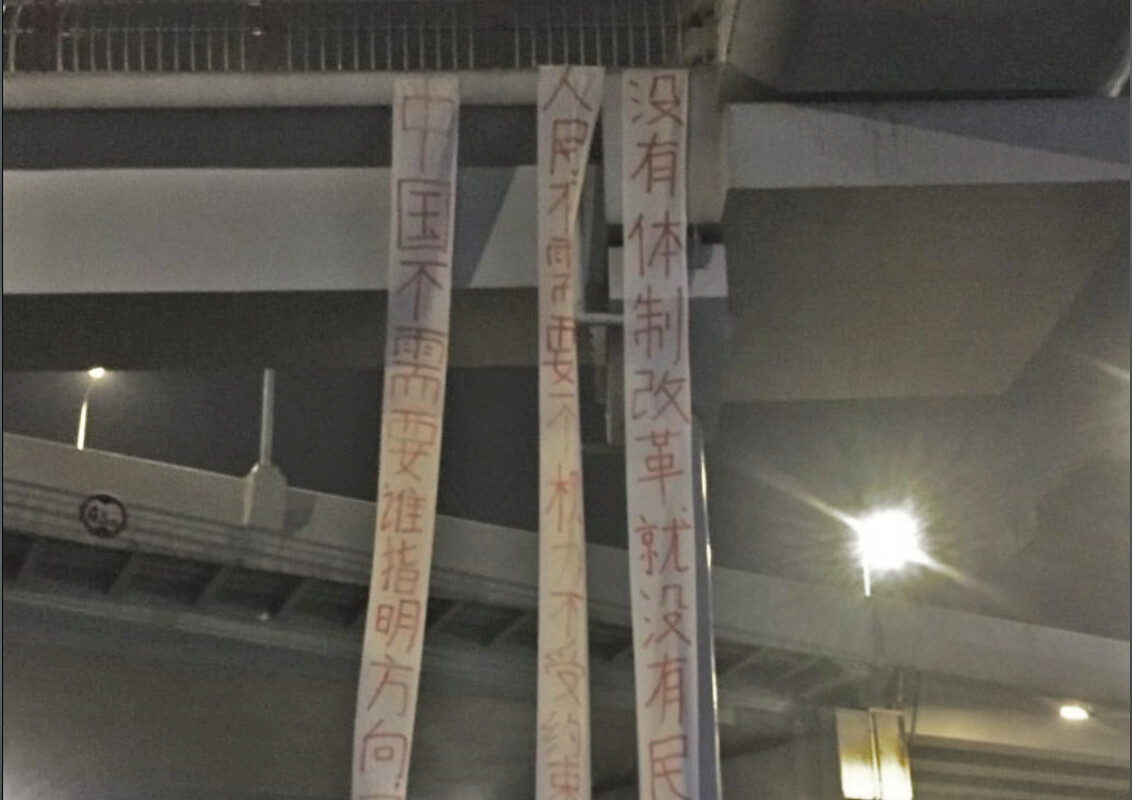 没有体制改革就没有民
人民不需要一个权力不受约束
中国不需要谁指明方向